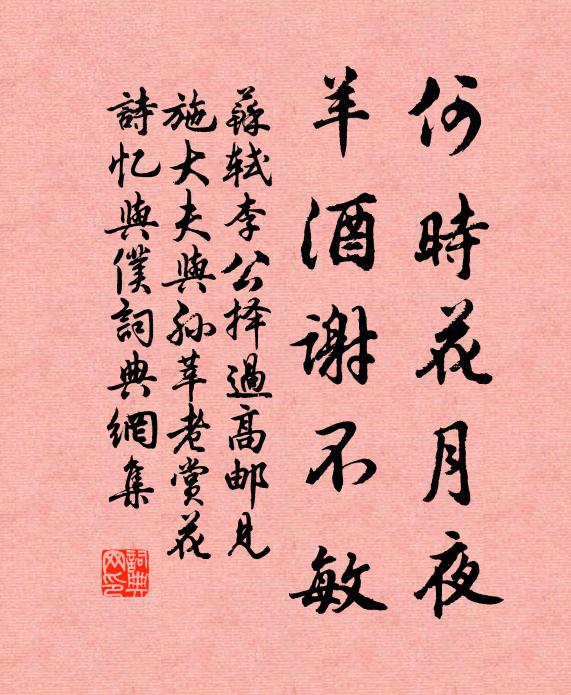 何時花月夜
羊酒謝不敏
蘇轼李公择過高邮見
施大夫與孙莘老賞花
詩忆與僕詞典網集
詞典网印